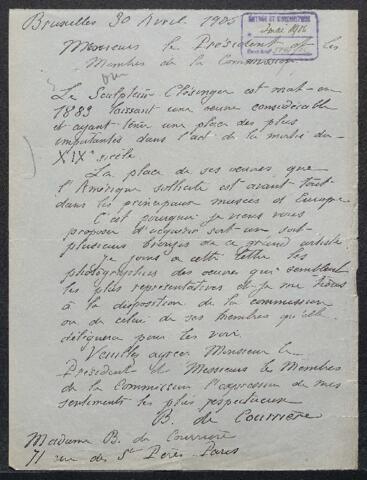 Bruxelles 30 Avril 1906
Messieurs le Président et les
Membres de la Commission
Le Sculpteur Clésinger est mort en
1883 laissant une œuvre considérable
et ayant tenu une place des plus
importantes dans l'art de la moitié du
XIXe siècle
La place de ses œuvres que
l'Amérique sollicite est avant tout
dans les principaux musées d'Europe
C'est pourquoi je viens vous
proposer d'acquérir soit un soit
plusieurs bronzes de ce grand artiste
Je joins à cette lettre les
photographies des œuvres qui semblent
les plus représentatives et je me tiens
à la disposition de la commission
ou de celui de ses membres qu'elle
délèguera pour les voir
Veuillez agréer Monsieur le
Président et Messieurs les Membres
de la Commission l'expression de mes
sentiments les plus respectueux
B. de Courrière
Madame B. de Courrière
71 rue des Sts Pères Paris